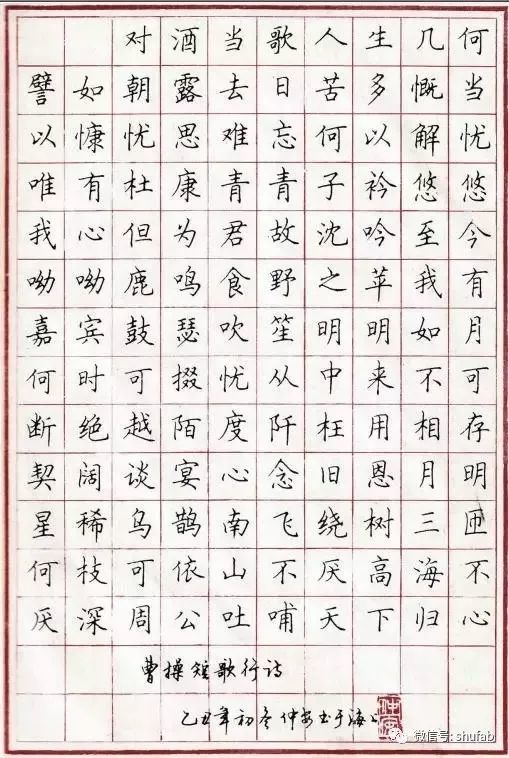 对酒当歌人生几何
譬如朝露去日苦多慨当
以慷忧思难忘何以解忧
唯有杜康青青子衿悠悠
我心但为君故沈吟至今
呦呦鹿鸣食野之苹我有
嘉宾鼓瑟吹笙明明如月
何时可掇忧从中来不可
断绝越陌度阡枉用相存
契阔谈宴心念旧恩月明
星稀乌鹊南飞绕树三匝
何枝可依山不厌高海不
厌深周公吐哺天下归心
曹操短歌行诗
乙丑年初冬仲安书于海上
微信号: shufab